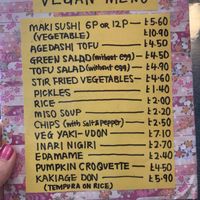 VEGAN MENU
MAKI SUSHI 6P OR 12P — £5.60
(VEGETABLE) £10.90
AGEDASHI TOFU — £4.50
GREEN SALAD (without egg) — £4.50
TOFU SALAD (without egg) — £4.90
STIR FRIED VEGETABLES — £4.60
PICKLES — £1.40
RICE — £2.00
MISO SOUP — £2.20
CHIPS (with salt & pepper) — £2.50
VEG YAKI-UDON — £7.10
INARI NIGIRI — £2.70
EDAMAME — £2.40
PUMPKIN CROQUETTE — £4.50
KAKIAGE DON — £5.90
(TEMPURA ON RICE)